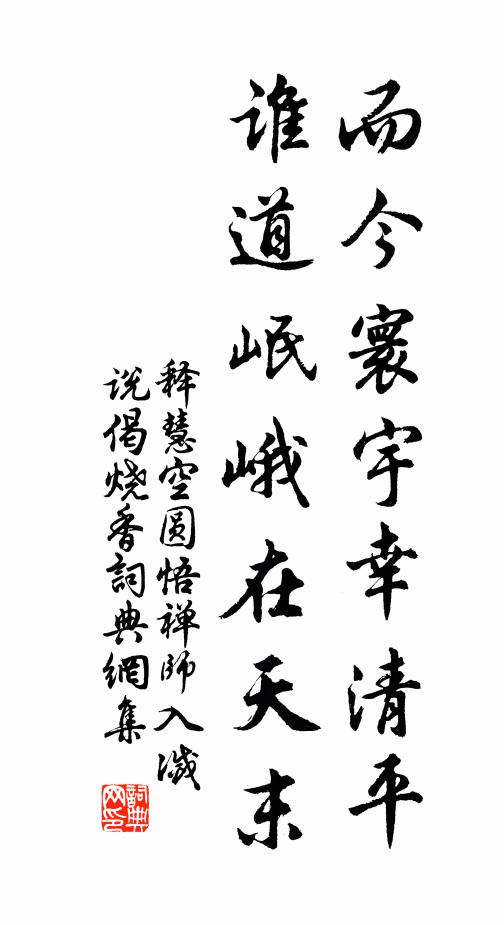 而今寰宇幸清平
谁道岷峨在天末
释慧空圆悟禅师入滅
说偈烧香詞典網集
詞典网印